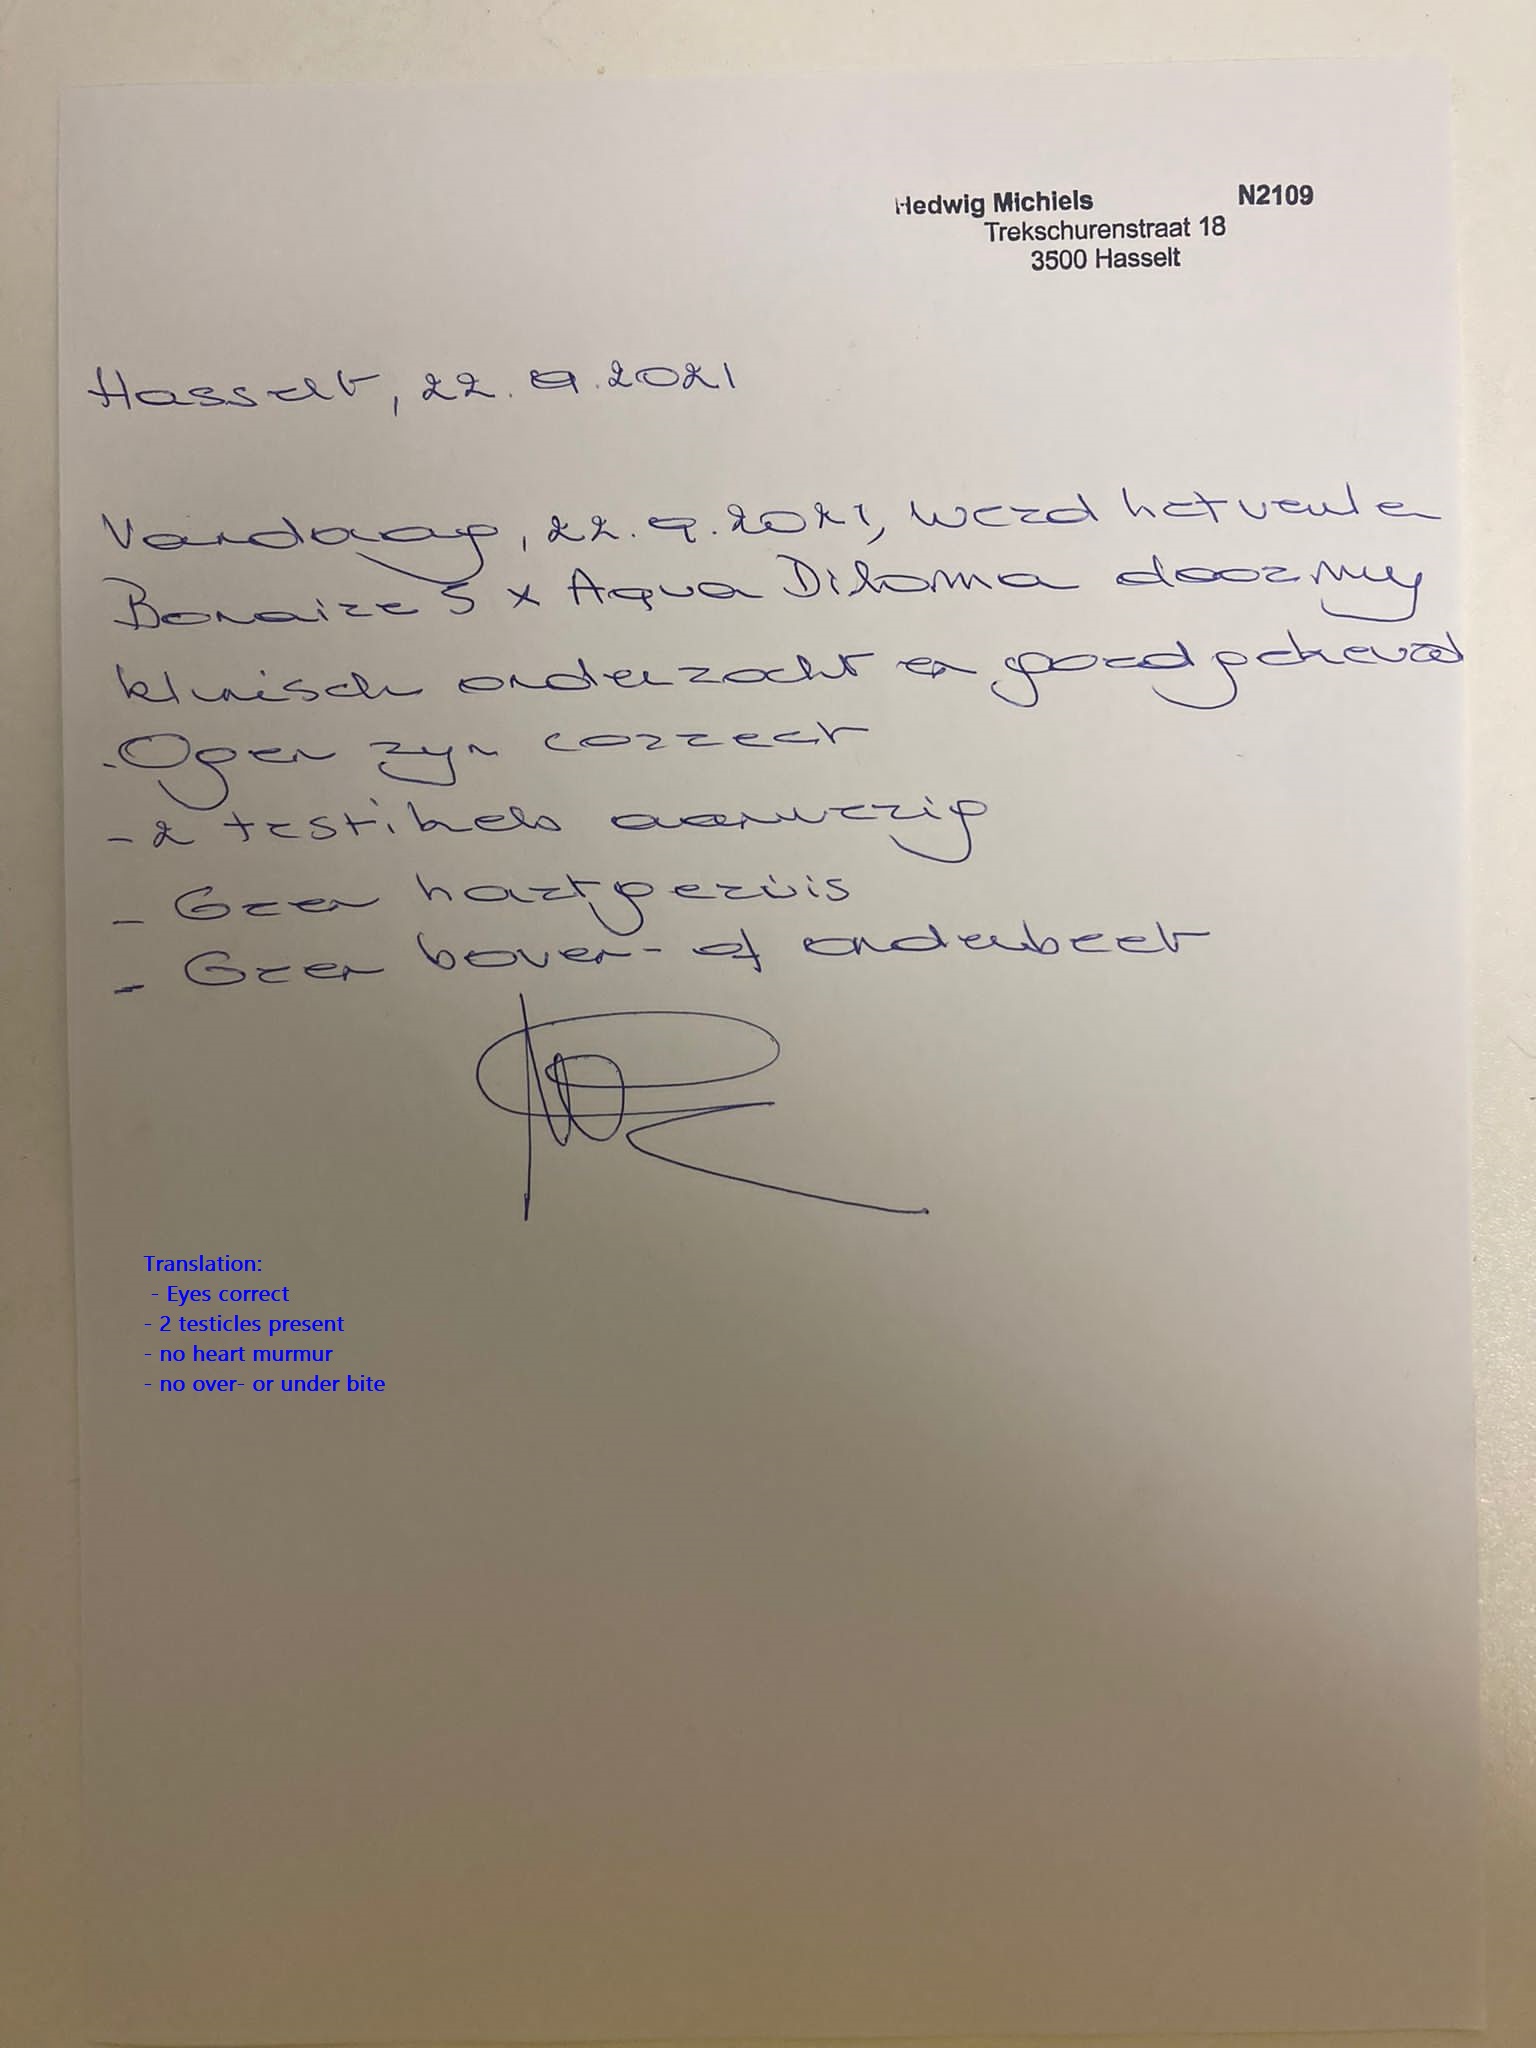 Hedwig Michiels N2109
Trekschurenstraat 18
3500 Hasselt
Hasselt, 22.9.2021
Vandaag, 22.9.2021, werd het veulen
Bonaire S x Aqua Diloma door my
klinisch onderzocht en goedgekeurd
- Ogen zyn correct
- 2 testikels aanwezig
- Geen hartgeruis
- Geen boven- of onderbeet
Translation:
- Eyes correct
- 2 testicles present
- no heart murmur
- no over- or under bite